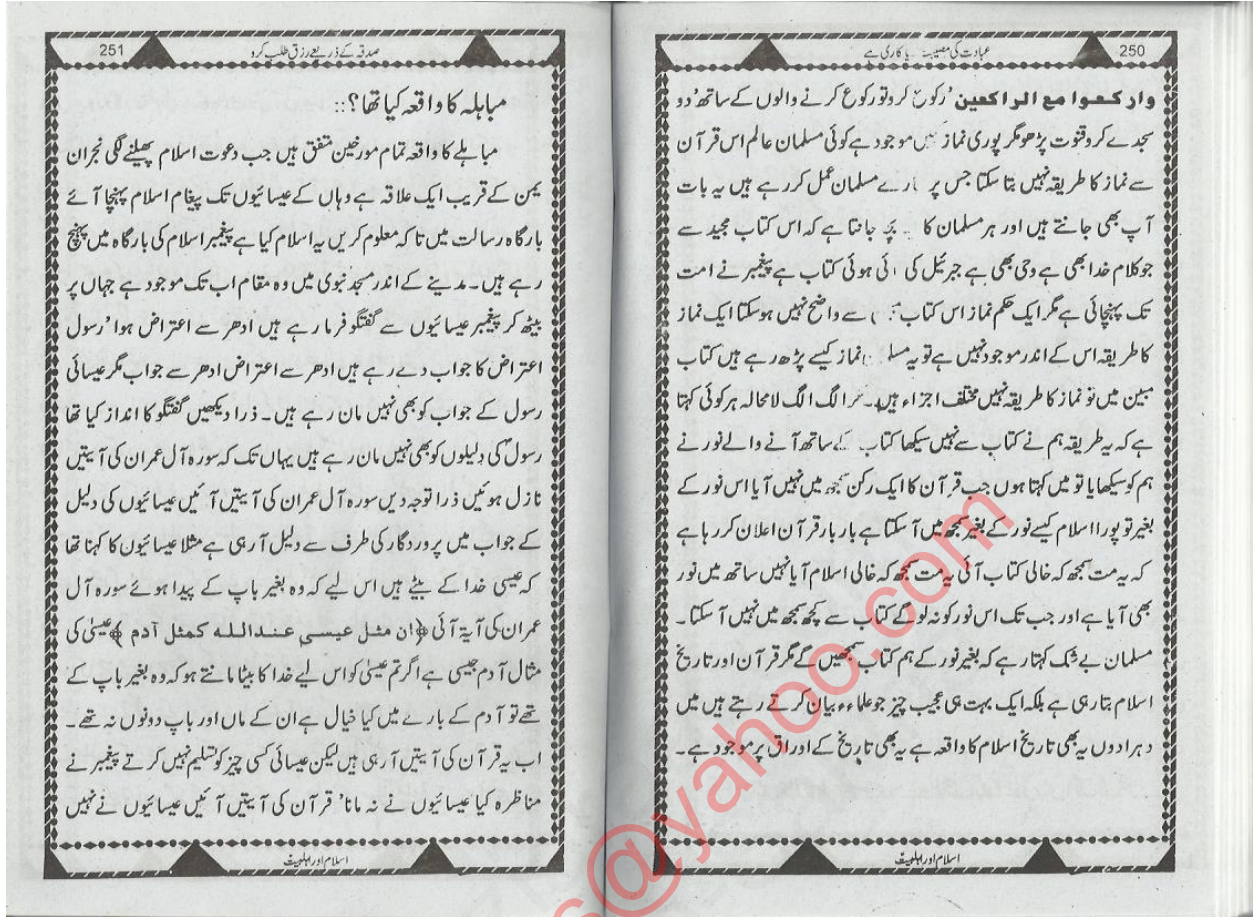 250
عبادت کی مصیبت ریاکاری ہے
وارکعوا مع الراکعین' رکوع کرو تو رکوع کرنے والوں کے ساتھ' دو
سجدے کرو قنوت پڑھو مگر پوری نماز نہیں موجود ہے کوئی مسلمان عالم اس قرآن
سے نماز کا طریقہ نہیں بتا سکتا جس پر سارے مسلمان عمل کر رہے ہیں یہ بات
آپ بھی جانتے ہیں اور ہر مسلمان کا بچہ جانتا ہے کہ اس کتاب مجید سے
جو کلام خدا بھی ہے وحی بھی ہے جبرئیل کی لائی ہوئی کتاب ہے پیغمبر نے امت
تک پہنچائی ہے مگر ایک حکم نماز اس کتاب سے واضح نہیں ہو سکتا ایک نماز
کا طریقہ اس کے اندر موجود نہیں ہے تو یہ مسلمان نماز کیسے پڑھ رہے ہیں کتاب
مبین میں تو نماز کا طریقہ نہیں مختلف اجزاء ہیں۔ الگ الگ لا محالہ ہر کوئی کہتا
ہے کہ یہ طریقہ ہم نے کتاب سے نہیں سیکھا کتاب کے ساتھ آنے والے نور نے
ہم کو سیکھایا تو میں کہتا ہوں جب قرآن کا ایک رکن سمجھ میں نہیں آیا اس نور کے
بغیر تو پورا اسلام کیسے نور کے بغیر سمجھ میں آ سکتا ہے بار بار قرآن اعلان کر رہا ہے
کہ یہ مت سمجھ کہ خالی کتاب آئی یہ مت سمجھ کہ خالی اسلام آیا نہیں ساتھ میں نور
بھی آیا ہے اور جب تک اس نور کو نہ لو گے کتاب سے کچھ سمجھ میں نہیں آ سکتا۔
مسلمان بے شک کہتا رہے کہ بغیر نور کے ہم کتاب سمجھیں گے مگر قرآن اور تاریخ
اسلام بتا رہی ہے بلکہ ایک بہت ہی عجیب چیز جو علماء بیان کرتے رہتے ہیں میں
دہرا دوں یہ بھی تاریخ اسلام کا واقعہ ہے یہ بھی تاریخ کے اوراق پر موجود ہے۔
اسلام اور اہلبیتؑ
251
صدقہ کے ذریعے رزق طلب کرو
مباہلہ کا واقعہ کیا تھا؟::
مباہلے کا واقعہ تمام مورخین متفق ہیں جب دعوت اسلام پھیلنے لگی نجران
یمن کے قریب ایک علاقہ ہے وہاں کے عیسائیوں تک پیغام اسلام پہنچا آئے
بارگاہ رسالت میں تاکہ معلوم کریں یہ اسلام کیا ہے پیغمبر اسلام کی بارگاہ میں پہنچ
رہے ہیں۔ مدینے کے اندر مسجد نبوی میں وہ مقام اب تک موجود ہے جہاں پر
بیٹھ کر پیغمبر عیسائیوں سے گفتگو فرما رہے ہیں ادھر سے اعتراض ہوا' رسول
اعتراض کا جواب دے رہے ہیں ادھر سے اعتراض ادھر سے جواب مگر عیسائی
رسول کے جواب کو بھی نہیں مان رہے ہیں۔ ذرا دیکھیں گفتگو کا انداز کیا تھا
رسولؐ کی دلیلوں کو بھی نہیں مان رہے ہیں یہاں تک کہ سورہ آل عمران کی آیتیں
نازل ہوئیں ذرا توجہ دیں سورہ آل عمران کی آیتیں آئیں عیسائیوں کی دلیل
کے جواب میں پروردگار کی طرف سے دلیل آ رہی ہے مثلا عیسائیوں کا کہنا تھا
کہ عیسی خدا کے بیٹے ہیں اس لیے کہ وہ بغیر باپ کے پیدا ہوئے سورہ آل
عمران کی آیۃ آئی ﴿ان مثل عیسی عند الله کمثل آدم﴾ عیسٰی کی
مثال آدم جیسی ہے اگر تم عیسٰی کو اس لیے خدا کا بیٹا مانتے ہو کہ وہ بغیر باپ کے
تھے تو آدم کے بارے میں کیا خیال ہے ان کے ماں اور باپ دونوں نہ تھے۔
اب یہ قرآن کی آیتیں آ رہی ہیں لیکن عیسائی کسی چیز کو تسلیم نہیں کرتے پیغمبر نے
مناظرہ کیا عیسائیوں نے نہ مانا' قرآن کی آیتیں آئیں عیسائیوں نے نہیں
اسلام اور اہلبیتؑ
s@yahoo.com